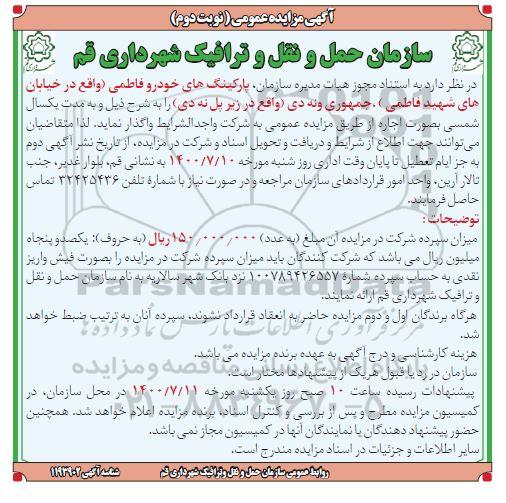 آگهی مزایده عمومی (نوبت دوم)
سازمان حمل و نقل و ترافیک شهرداری قم
در نظر دارد به استناد مجوز هیات مدیره سازمان، پارکینگ های خودرو فاطمی (واقع در خیابان
های شهید فاطمی)، جمهوری ونه دی (واقع در زیر پل نه دی) را به شرح ذیل و به مدت یکسال
شمسی بصورت اجاره از طریق مزایده عمومی به شرکت واجدالشرایط واگذار نماید. لذا متقاضیان
می‌توانند جهت اطلاع از شرایط و دریافت و تحویل اسناد و شرکت در مزایده، از تاریخ نشر آگهی دوم
به جز ایام تعطیل تا پایان وقت اداری روز شنبه مورخه ۱۴۰۰/۷/۱۰ به نشانی قم، بلوار غدیر، جنب
تالار آرین، واحد امور قراردادهای سازمان مراجعه و در صورت نیاز با شمارۀ تلفن ۳۲۴۲۵۴۳۶ تماس
حاصل فرمایند.
توضیحات:
میزان سپرده شرکت در مزایده آن مبلغ (به عدد) ۱۵۰/۰۰۰/۰۰۰ ریال (به حروف): یکصدو پنجاه
میلیون ریال می باشد که شرکت کنندگان باید میزان سپرده شرکت در مزایده را بصورت فیش واریز
نقدی به حساب سپرده شمارۀ ۱۰۰۷۸۹۴۲۶۵۵۷ نزد بانک شهر سالاریه به نام سازمان حمل و نقل
و ترافیک شهرداری قم ارائه نمایند.
هرگاه برندگان اول و دوم مزایده حاضر به انعقاد قرارداد نشوند، سپرده آنان به ترتیب ضبط خواهد
شد.
هزینه کارشناسی و درج آگهی به عهده برنده مزایده می باشد.
سازمان در رد یا قبول هریک از پیشنهادها مختار است.
پیشنهادات رسیده ساعت ۱۰ صبح روز یکشنبه مورخه ۱۴۰۰/۷/۱۱ در محل سازمان، در
کمیسیون مزایده مطرح و پس از بررسی و کنترل اسناد، برنده مزایده اعلام خواهد شد. همچنین
حضور پیشنهاد دهندگان یا نمایندگان آنها در کمیسیون مجاز نمی باشد.
سایر اطلاعات و جزئیات در اسناد مزایده مندرج است.
روابط عمومی سازمان حمل و نقل و ترافیک شهرداری قم
شناسه آگهی ۱۱۹۳۹۰۲